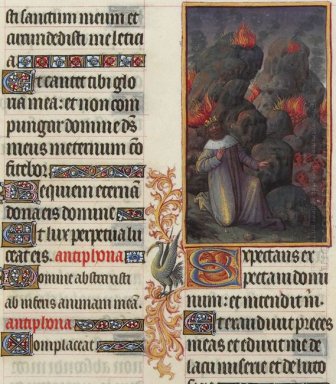 sti sanctum meum et
circumdedisti me letici
a.
Ut cantet tibi glo
ria mea: et non com
pungar domine ds̄
meus ineternum cō
fitebor.
Requiem eternā
dona eis domine
Et lux perpetua lu
ceat eis. antiphona
Domine abstraxisti
ab inferis animam meā.
antiphona
Complaceat
Expectans ex
pectaui domi
num: et intendit m̄.
Et exaudiuit preces
meas et eduxit me de
lacu miserie et de luto